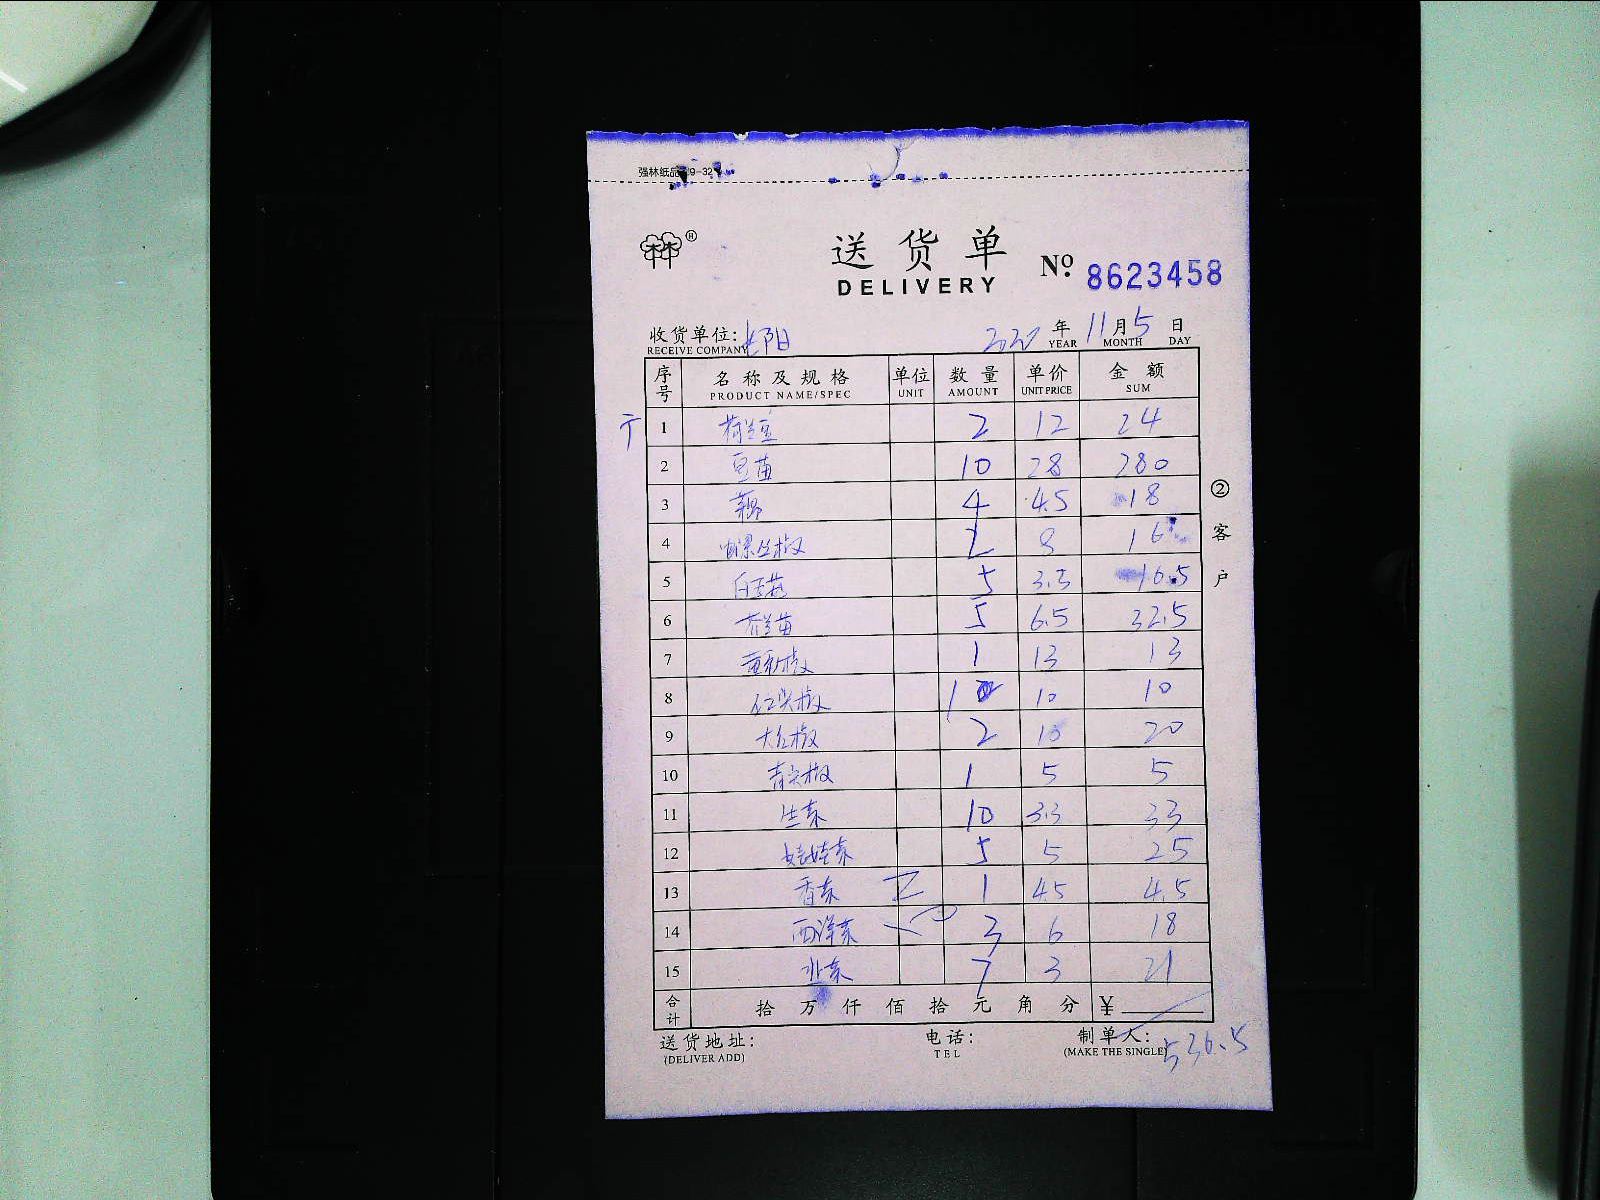 强林纸品 9-32
送货单
DELIVERY
No. 8623458
收货单位: 阳 年 11 月 5 日
RECEIVE COMPANY YEAR MONTH DAY
序号 名称及规格 单位 数量 单价 金额
PRODUCT NAME/SPEC UNIT AMOUNT UNIT PRICE SUM
1 荷兰豆 2 12 24
2 豆苗 10 28 280
3 藕 4 4.5 18
4 螺丝椒 2 8 16
5 白玉菇 5 3.3 16.5
6 荷兰苗 5 6.5 32.5
7 黄彩椒 1 13 13
8 红尖椒 1 10 10
9 大红椒 2 10 20
10 青尖椒 1 5 5
11 生菜 10 3.3 33
12 娃娃菜 5 5 25
13 香菜 1 4.5 4.5
14 西洋菜 3 6 18
15 7 3 21
合计 拾 万 仟 佰 拾 元 角 分 ¥
536.5
送货地址: 电话: 制单人:
(DELIVER ADD) TEL (MAKE THE SINGLE)
②客户